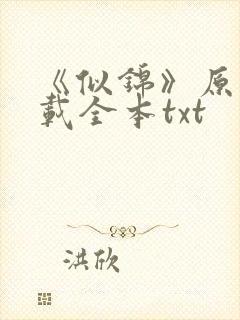 《似锦》原
载全本txt
洪欣